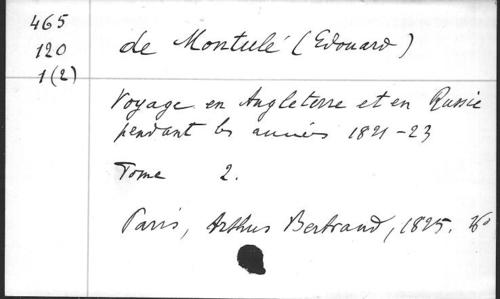 465
120
1(2)
de Montulé (Edouard)
Voyage en Angleterre et en Russie
pendant les années 1821-23
Tome 2.
Paris, Arthus Bertrand, 1825.